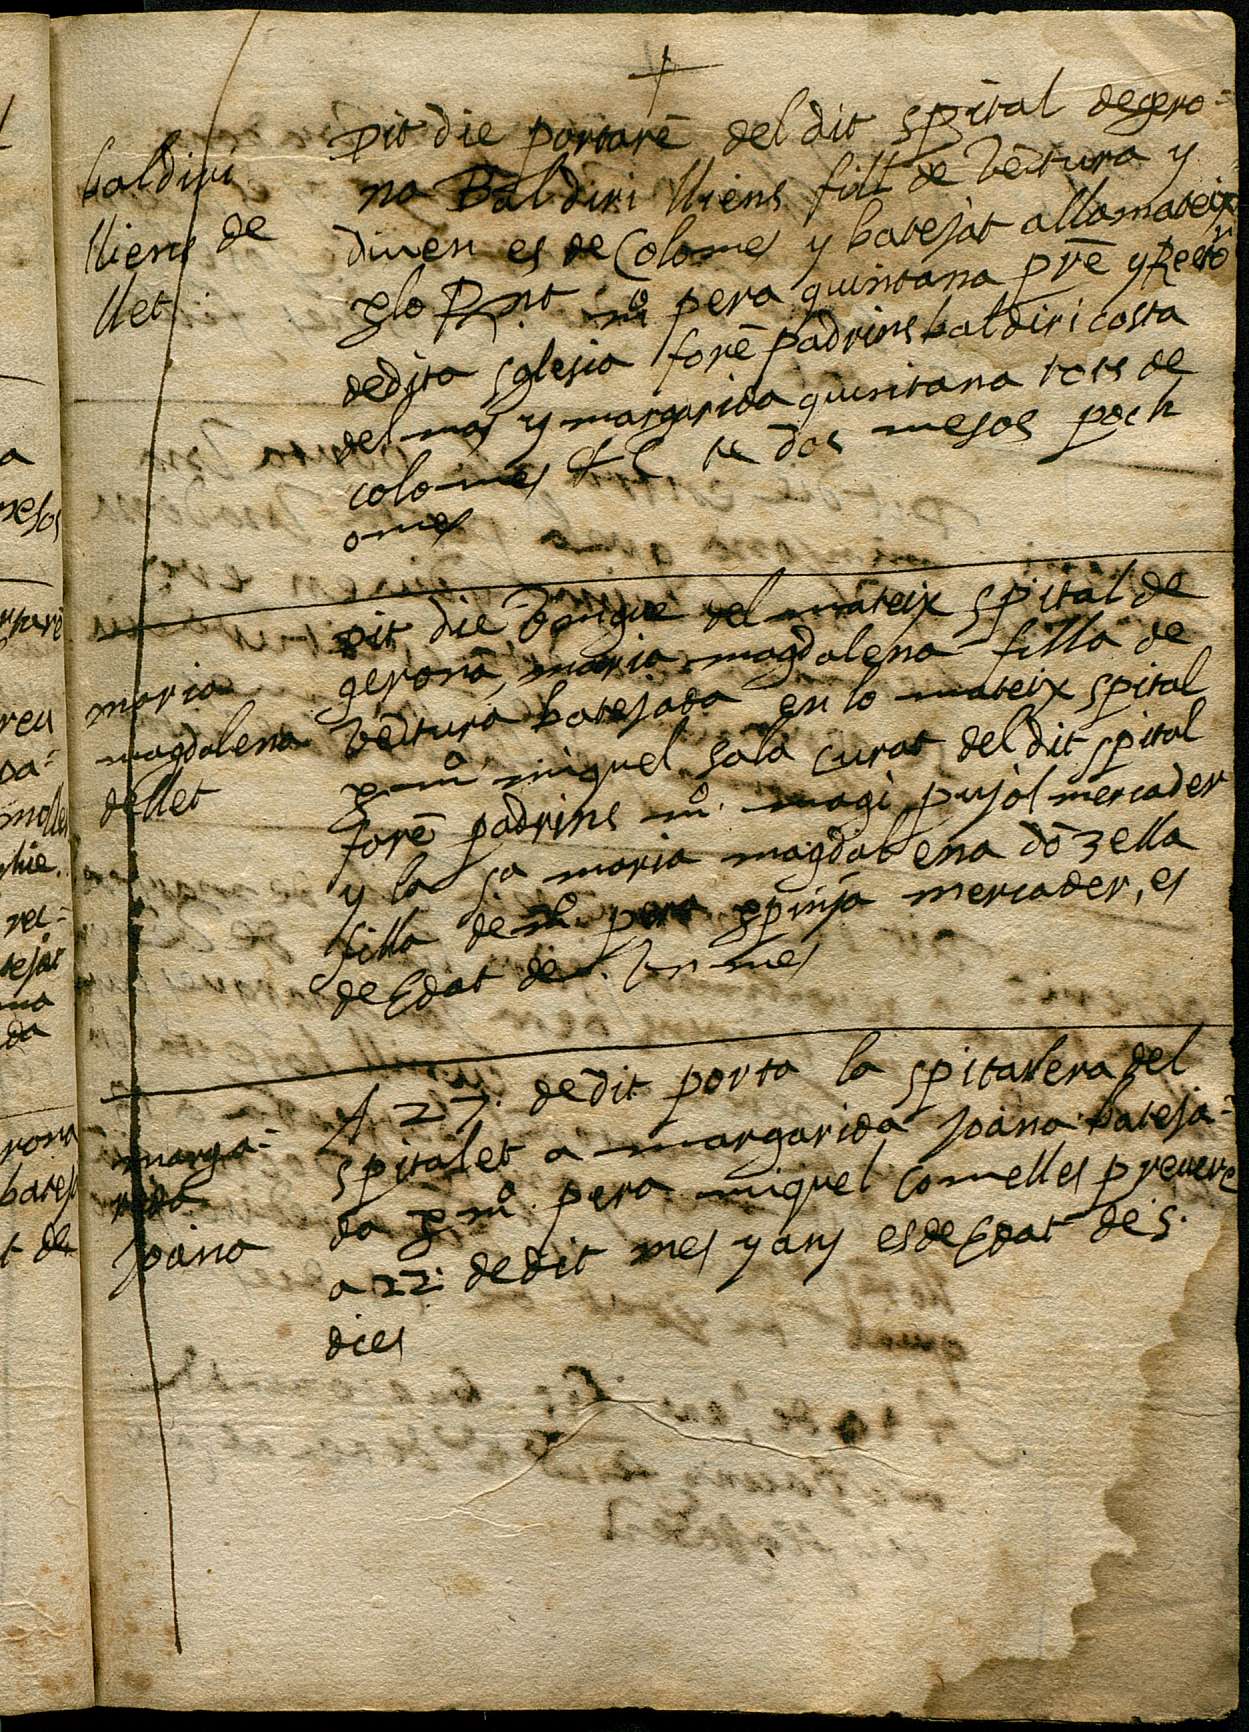 baldiri
lliens de
llet
Dit die portarē del dit spital de gero=
na Baldiri lliens fill de vētura y
diuen es de Colomes y batejat alla mateix
ꝑ lo Rnt mº pera quintana prē y Rector
de dita sglesia forē padrins baldiri costa
del mas y margarida quintana tots de
colomes te dos mesos poch
omes
maria
magdalena
dellet
Dit die vingue del mateix spital de
gerona, maria magdalena filla de
vētura batejada en lo mateix spital
ꝑ mº miquel sala curat del dit spital
forē padrins mº magi pujol mercader
y la sª maria magdalena dōzella
filla de mº pera mercader, es
de Edat de vn mes
marga=
rida
joana
A 27. de dit porta la spitalera del
spitalet a margarida joana bateja=
da ꝑ mº pera miquel comelles preuere
a 22 de dit mes y any es de Edat de 5.
dies